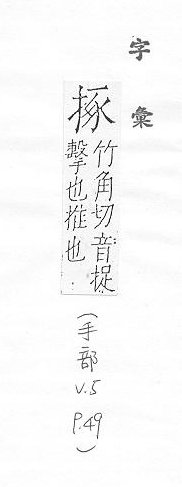 字彙
㧻
竹角切音捉
擊也推也
(手部
V.5
P.49)